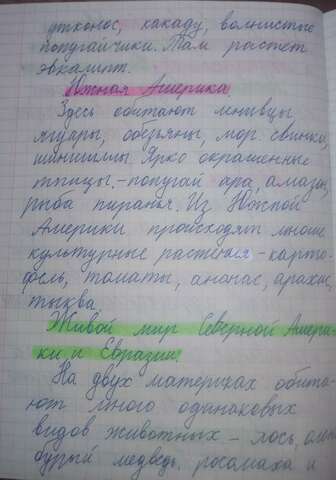 утконос, какаду, волнистые
попугайчики. Там растет
эвкалипт.
Южная Америка
Здесь обитают ленивцы,
ягуары, обезьяны, мор. свинки,
шиншиллы. Ярко окрашенные
птицы - попугай ара, амазон,
рыба пиранья. Из Южной
Америки происходят многие
культурные растения - карто-
фель, томаты, ананас, арахис,
тыква.
Живой мир Северной Амери-
ки и Евразии
На двух материках обита-
ют много одинаковых
видов животных - лось,
бурый медведь, росомаха и